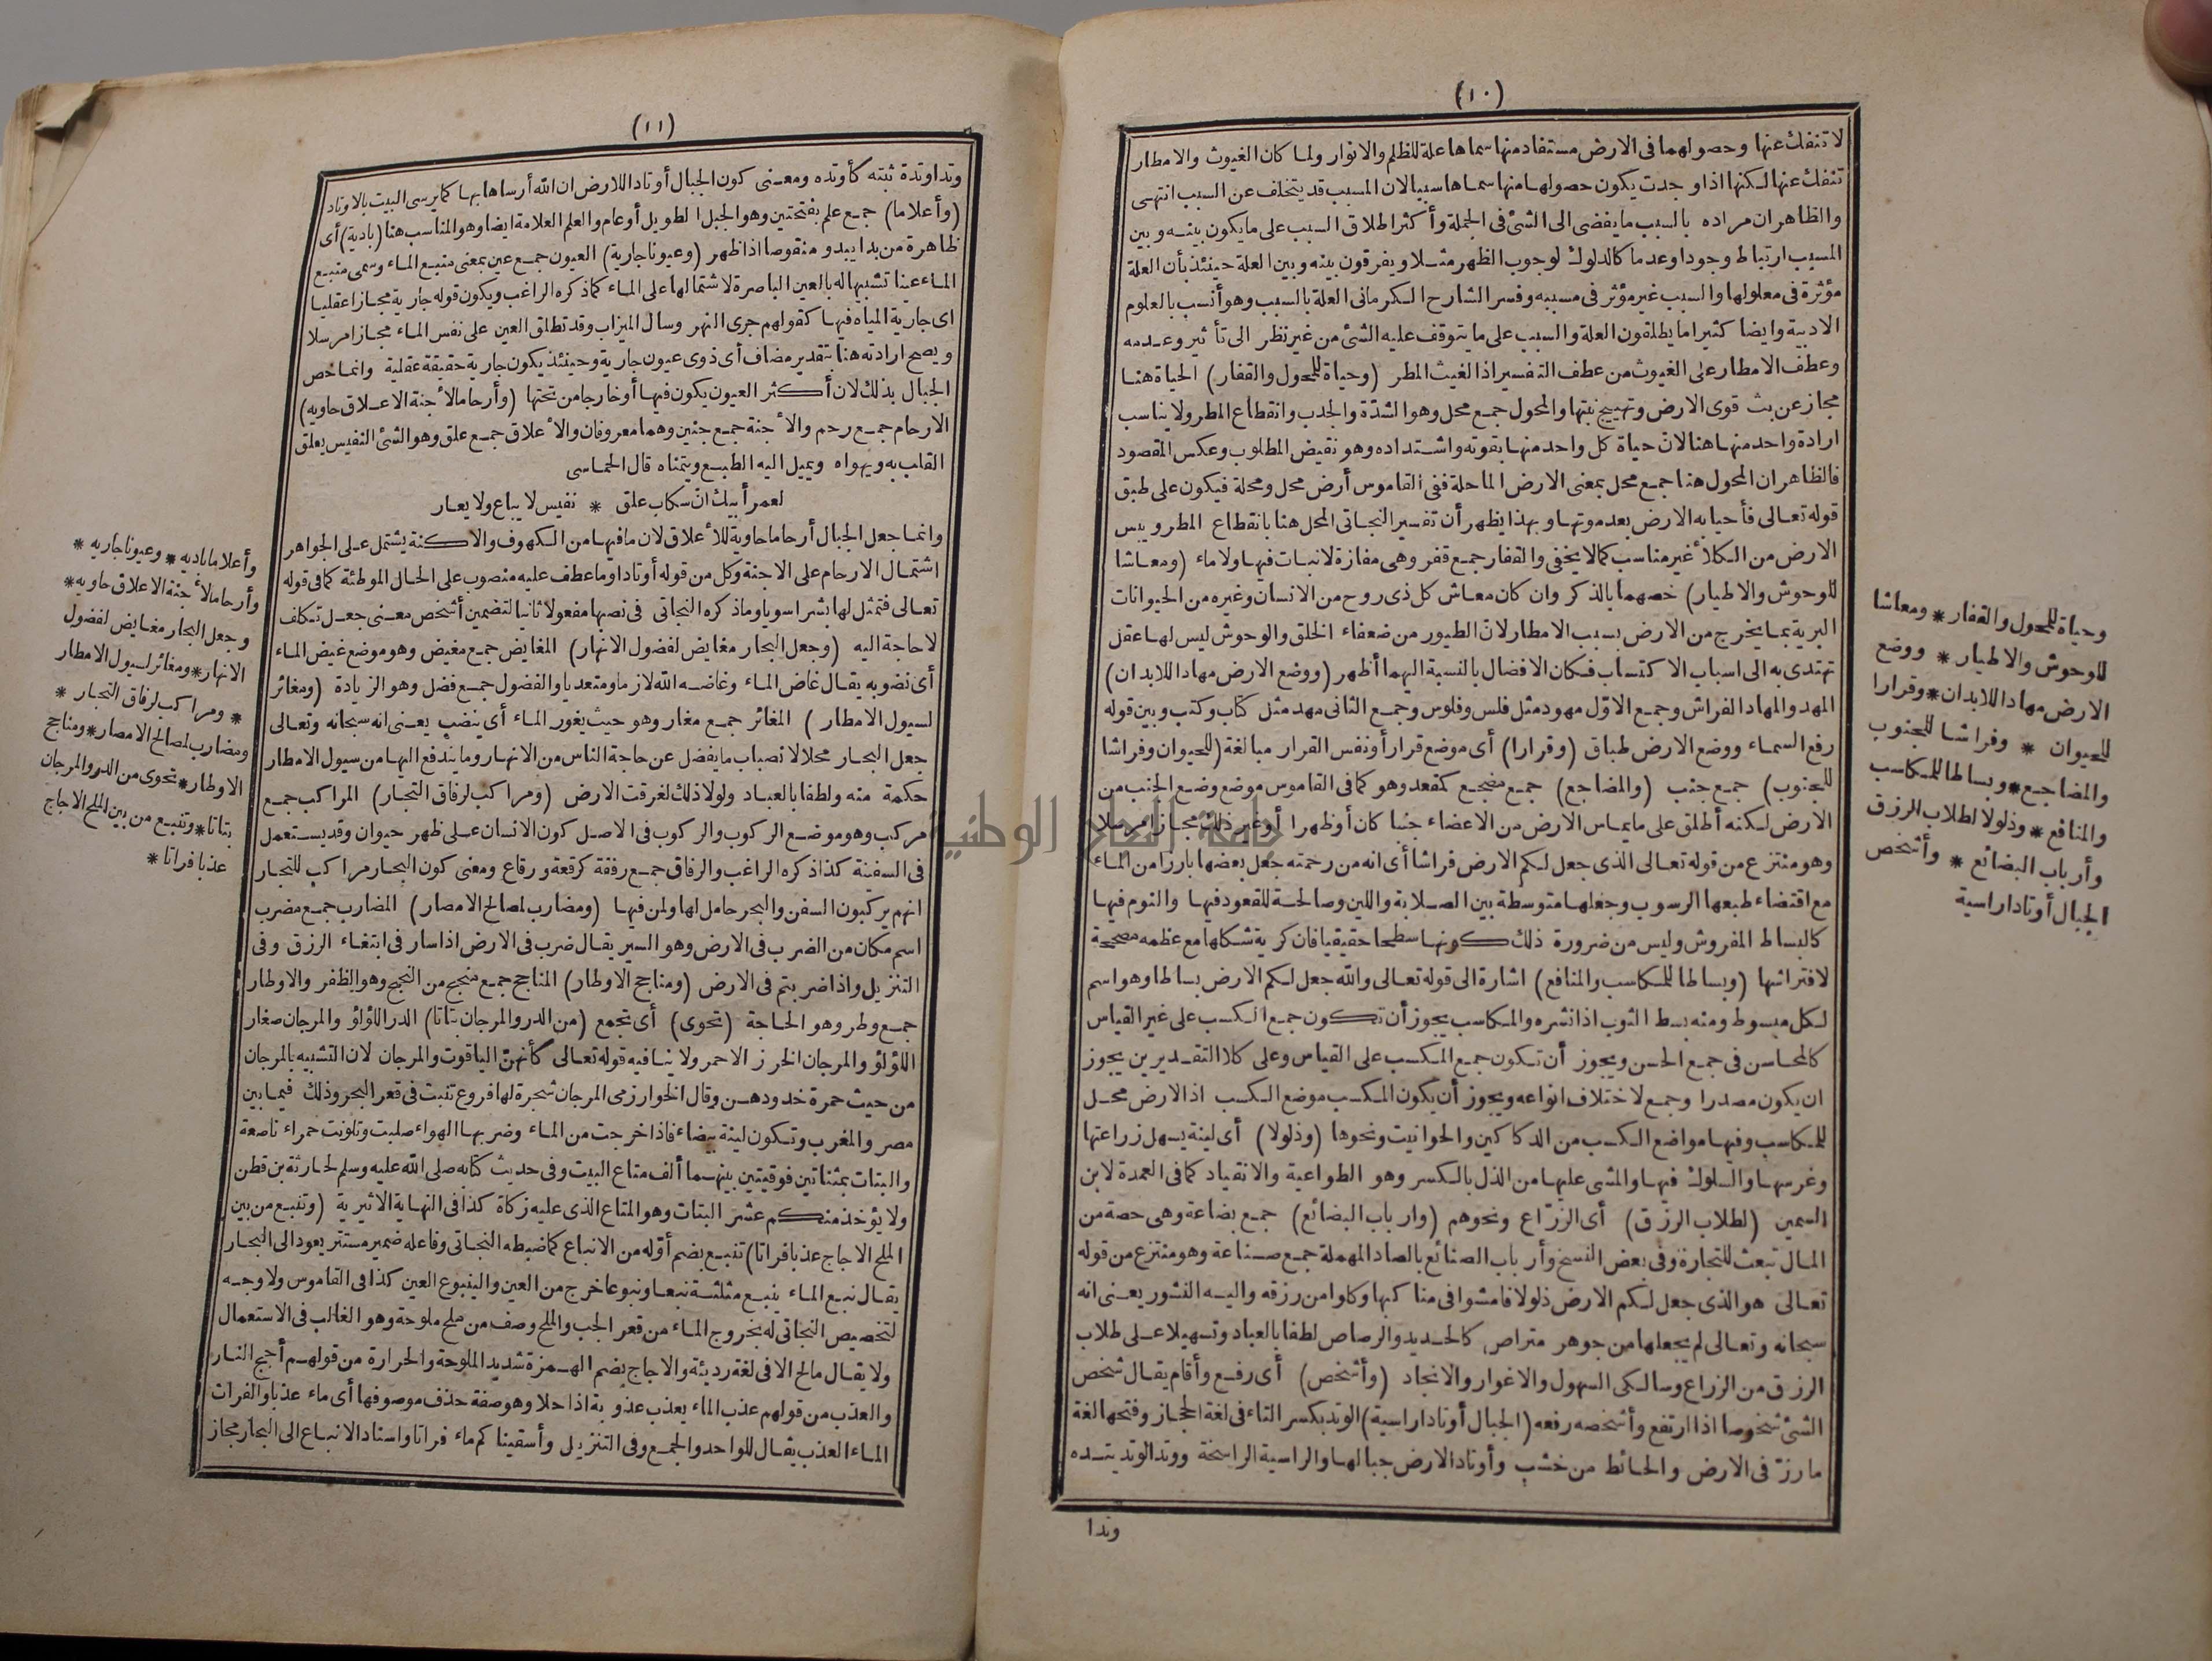 (١٠)
لا تنفك عنها وحصولهما فى الارض مستفاد منها سماها علة للظلم والانوار ولما كان الغيوث والامطار
تنفك عنها لكنها اذا وجدت يكون حصولها منها سماها سببا لان المسبب قد يتخلف عن السبب انتهى
والظاهر ان مراده بالسبب ما يفضى الى الشئ فى الجملة وأكثر اطلاق السبب على ما يكون بينه وبين
المسبب ارتباط وجودا وعدما كالدلوك لوجوب الظهر مثلا ويفرقون بينه وبين العلة حينئذ بأن العلة
مؤثرة فى معلولها والسبب غير مؤثر فى مسببه وفسر الشارح الكرمانى العلة بالسبب وهو أنسب بالعلوم
الادبية وايضا كثيرا ما يطلقون العلة والسبب على ما يتوقف عليه الشئ من غير نظر الى تأثير وعدمه
وعطف الامطار على الغيوث من عطف التفسير اذ الغيث المطر (وحياة للمحول والقفار) الحياة هنا
مجاز عن بث قوى الارض وتهييج نبتها والمحول جمع محل وهو الشدّة والجدب وانقطاع المطر ولا يناسب
ارادة واحد منها هنا لانّ حياة كل واحد منها بقوته واشتداده وهو نقيض المطلوب وعكس المقصود
فالظاهر ان المحول هنا جمع محل بمعنى الارض الماحلة ففى القاموس أرض محل ومحلة فيكون على طبق
قوله تعالى فأحيا به الارض بعد موتها وبهذا يظهر أن تفسير النجاتى المحل هنا بانقطاع المطر ويبس
الارض من الكلأ غير مناسب كما لا يخفى والقفار جمع قفر وهى مفازة لا نبات فيها ولا ماء (ومعاشا
للوحوش والاطيار) خصهما بالذكر وان كان معاش كل ذى روح من الانسان وغيره من الحيوانات
البرية بما يخرج من الارض بسبب الامطار لانّ الطيور من ضعفاء الخلق والوحوش ليس لها عقل
تهتدى به الى اسباب الاكتساب فكان الافضال بالنسبة اليهما أظهر (ووضع الارض مهادا للابدان)
المهد والمهاد الفراش وجمع الاوّل مهود مثل فلس وفلوس وجمع الثانى مهد مثل كتاب وكتب وبين قوله
رفع السماء ووضع الارض طباق (وقرارا) أى موضع قرار أو نفس القرار مبالغة (للحيوان وفراشا
للجنوب) جمع جنب (والمضاجع) جمع مضجع كمقعد وهو كما فى القاموس موضع وضع الجنب من
الارض لكنه أطلق على ما يماس الارض من الاعضاء جنبا كان أو ظهرا أو غير ذلك مجازا مرسلا
وهو منتزع من قوله تعالى الذى جعل لكم الارض فراشا أى انه من رحمته جعل بعضها بارزا من الماء
مع اقتضاء طبعها الرسوب وجعلها متوسطة بين الصلابة واللين وصالحة للقعود فيها والنوم فيها
كالبساط المفروش وليس من ضرورة ذلك كونها سطحا حقيقيا فان كرية شكلها مع عظمه مصححة
لافتراشها (وبساطا للمكاسب والمنافع) اشارة الى قوله تعالى والله جعل لكم الارض بساطا وهو اسم
لكل مبسوط ومنه بسط الثوب اذا نشره والمكاسب يجوز أن تكون جمع الكسب على غير القياس
كالمحاسن فى جمع الحسن ويجوز أن تكون جمع المكسب على القياس وعلى كلا التقديرين يجوز
ان يكون مصدرا وجمع لاختلاف انواعه ويجوز أن يكون المكسب موضع الكسب اذ الارض محل
للمكاسب وفيها مواضع الكسب من الدكاكين والحوانيت ونحوها (وذلولا) أى لينة يسهل زراعتها
وغرسها والسلوك فيها والمشى عليها من الذل بالكسر وهو الطواعية والانقياد كما فى العمدة لابن
السمين (لطلاب الرزق) أى الزرّاع ونحوهم (وارباب البضائع) جمع بضاعة وهى حصة من
المال تبعث للتجارة وفى بعض النسخ وأرباب الصنائع بالصاد المهملة جمع صناعة وهو منتزع من قوله
تعالى هو الذى جعل لكم الارض ذلولا فامشوا فى مناكبها وكلوا من رزقه واليه النشور يعنى انه
سبحانه وتعالى لم يجعلها من جوهر متراص كالحديد والرصاص لطفا بالعباد وتسهيلا على طلاب
الرزق من الزراع وسالكى السهول والاغوار والانجاد (وأشخص) أى رفع وأقام يقال شخص
الشئ شخوصا اذا ارتفع وأشخصه رفعه (الجبال أوتادا راسية) الوتد بكسر التاء فى لغة الحجاز وفتحها لغة
مارزّ فى الارض والحائط من خشب وأوتاد الارض جبالها والراسية الراسخة ووتد الوتد يتده
وتدا
وحياة للمحول والقفار * ومعاشا
للوحوش والاطيار * ووضع
الارض مهادا للابدان * وقرارا
للحيوان * وفراشا للجنوب
والمضاجع * وبساطا للمكاسب
والمنافع * وذلولا لطلاب الرزق
وأرباب البضائع * وأشخص
الجبال أوتادا راسية
(١١)
وتدا وتدة ثبته كأوتده ومعنى كون الجبال أوتادا للارض ان الله أرساها بها كما يرسى البيت بالاوتاد
(وأعلاما) جمع علم بفتحتين وهو الجبل الطويل أو عام والعلم العلامة ايضا وهو المناسب هنا (بادية) أى
ظاهرة من بدا يبدو منقوصا اذا ظهر (وعيونا جارية) العيون جمع عين بمعنى منبع الماء وسمى منبع
الماء عينا تشبيها له بالعين الباصرة لاشتمالها على الماء كما ذكره الراغب ويكون قوله جارية مجازا عقليا
اى جارية المياه فيها كقولهم جرى النهر وسال الميزاب وقد تطلق العين على نفس الماء مجازا مرسلا
ويصح ارادته هنا بتقدير مضاف أى ذوى عيون جارية وحينئذ يكون جارية حقيقة عقلية وانما خص
الجبال بذلك لان أكثر العيون يكون فيها أو خارجا من تحتها (وأرحاما لأجنة الاعلاق حاويه)
الارحام جمع رحم والأجنة جمع جنين وهما معروفان والأعلاق جمع علق وهو الشئ النفيس يعلق
القلب به ويهواه ويميل اليه الطبع ويتمناه قال الحماسى
لعمر أبيك انّ سكاب علق * نفيس لا يباع ولا يعار
وانما جعل الجبال أرحاما حاوية للأعلاق لان ما فيها من الكهوف والاكنة يشتمل على الجواهر
اشتمال الارحام على الاجنة وكل من قوله أوتادا وما عطف عليه منصوب على الحال الموطئة كما فى قوله
تعالى فتمثل لها بشرا سويا وما ذكره النجاتى فى نصبها مفعولا ثانيا لتضمين أشخص معنى جعل تكلف
لا حاجة اليه (وجعل البحار مغايض لفضول الانهار) المغايض جمع مغيض وهو موضع غيض الماء
أى نضوبه يقال غاض الماء وغاضه الله لازما ومتعديا والفضول جمع فضل وهو الزيادة (ومغائر
لسيول الامطار) المغائر جمع مغار وهو حيث يغور الماء أى ينضب يعنى انه سبحانه وتعالى
جعل البحار محلا لانصباب ما يفضل عن حاجة الناس من الانهار وما يندفع اليها من سيول الامطار
حكمة منه ولطفا بالعباد ولولا ذلك لغرقت الارض (ومراكب لرفاق التجار) المراكب جمع
مركب وهو موضع الركوب والركوب فى الاصل كون الانسان على ظهر حيوان وقد يستعمل
فى السفينة كذا ذكره الراغب والرفاق جمع رفقة كرقعة ورقاع ومعنى كون البحار مراكب للتجار
انهم يركبون السفن والبحر حامل لها ولمن فيها (ومضارب لمصالح الامصار) المضارب جمع مضرب
اسم مكان من الضرب فى الارض وهو السير يقال ضرب فى الارض اذا سار فى ابتغاء الرزق وفى
التنزيل واذا ضربتم فى الارض (ومناجح الاوطار) المناجح جمع منجح من النجح وهو الظفر والاوطار
جمع وطر وهو الحاجة (تحوى) أى تجمع (من الدر والمرجان بتاتا) الدر اللؤلؤ والمرجان صغار
اللؤلؤ والمرجان الخرز الاحمر ولا ينافيه قوله تعالى كأنهنّ الياقوت والمرجان لان التشبيه بالمرجان
من حيث حمرة خدودهن وقال الخوارزمى المرجان شجرة لها فروع تنبت فى قعر البحر وذلك فيما بين
مصر والمغرب وتكون لينة بيضاء فاذا خرجت من الماء وضربها الهواء صلبت وتلونت حمراء ناصعة
والبتات بمثناتين فوقيتين بينهما ألف متاع البيت وفى حديث كتابه صلى الله عليه وسلم لحارثة بن قطن
ولا يؤخذ منكم عشر البتات وهو المتاع الذى عليه زكاة كذا فى النهاية الاثيرية (وتنبع من بين
الملح الاجاج عذبا فراتا) تنبع بضم أوّله من الانباع كما ضبطه النجاتى وفاعله ضمير مستتر يعود الى البحار
يقال نبع الماء ينبع مثلثة نبعا ونبوعا خرج من العين والينبوع العين كذا فى القاموس ولا وجه
لتخصيص النجاتى له بخروج الماء من قعر الجب والملح وصف من ملح ملوحة وهو الغالب فى الاستعمال
ولا يقال مالح الا فى لغة رديئة والاجاج بضم الهمزة شديد الملوحة والحرارة من قولهم أجيج النار
والعذب من قولهم عذب الماء يعذب عذوبة اذا حلا وهو صفة حذف موصوفها أى ماء عذبا والفرات
الماء العذب يقال للواحد والجمع وفى التنزيل وأسقيناكم ماء فراتا واسناد الانباع الى البحار مجاز
وأعلاما باديه * وعيونا جاريه *
وأرحاما لأجنة الاعلاق حاويه *
وجعل البحار مغايض لفضول
الانهار * ومغائر لسيول الامطار
* ومراكب لرفاق التجار *
ومضارب لمصالح الامصار * ومناجح
الاوطار * تحوى من الدر والمرجان
بتاتا * وتنبع من بين الملح الاجاج
عذبا فراتا *